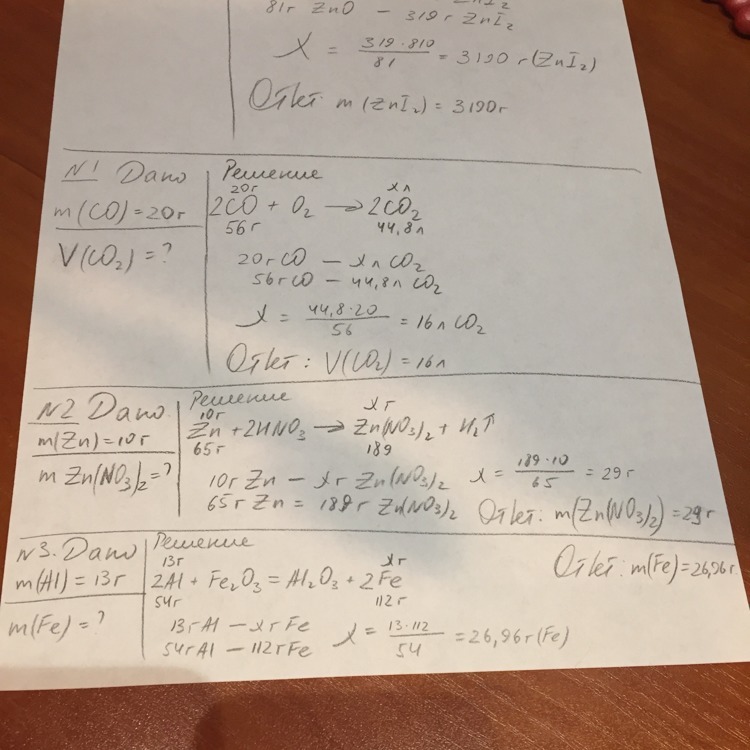 81г ZnO — 319г ZnI₂
X = 319·810 / 81 = 3190 г (ZnI₂)
Ответ: m (ZnI₂) = 3190г
N1 Дано
m(CO) = 20г
V(CO₂) = ?
Решение
20г xл
2CO + O₂ → 2CO₂
56г 44,8л
20г CO — xл CO₂
56г CO — 44,8л CO₂
X = 44,8·20 / 56 = 16л CO₂
Ответ: V(CO₂) = 16л
N2 Дано
m(Zn) = 10г
m Zn(NO₃)₂ = ?
Решение
10г xг
Zn + 2HNO₃ → Zn(NO₃)₂ + H₂↑
65г 189
10г Zn — xг Zn(NO₃)₂
65г Zn = 189г Zn(NO₃)₂
X = 189·10 / 65 = 29г
Ответ: m(Zn(NO₃)₂) = 29г
N3. Дано
m(Al) = 13г
m(Fe) = ?
Решение
13г xг
2Al + Fe₂O₃ = Al₂O₃ + 2Fe
54г 112г
13г Al — xг Fe
54г Al — 112г Fe
X = 13·112 / 54 = 26,96г (Fe)
Ответ: m(Fe) = 26,96г